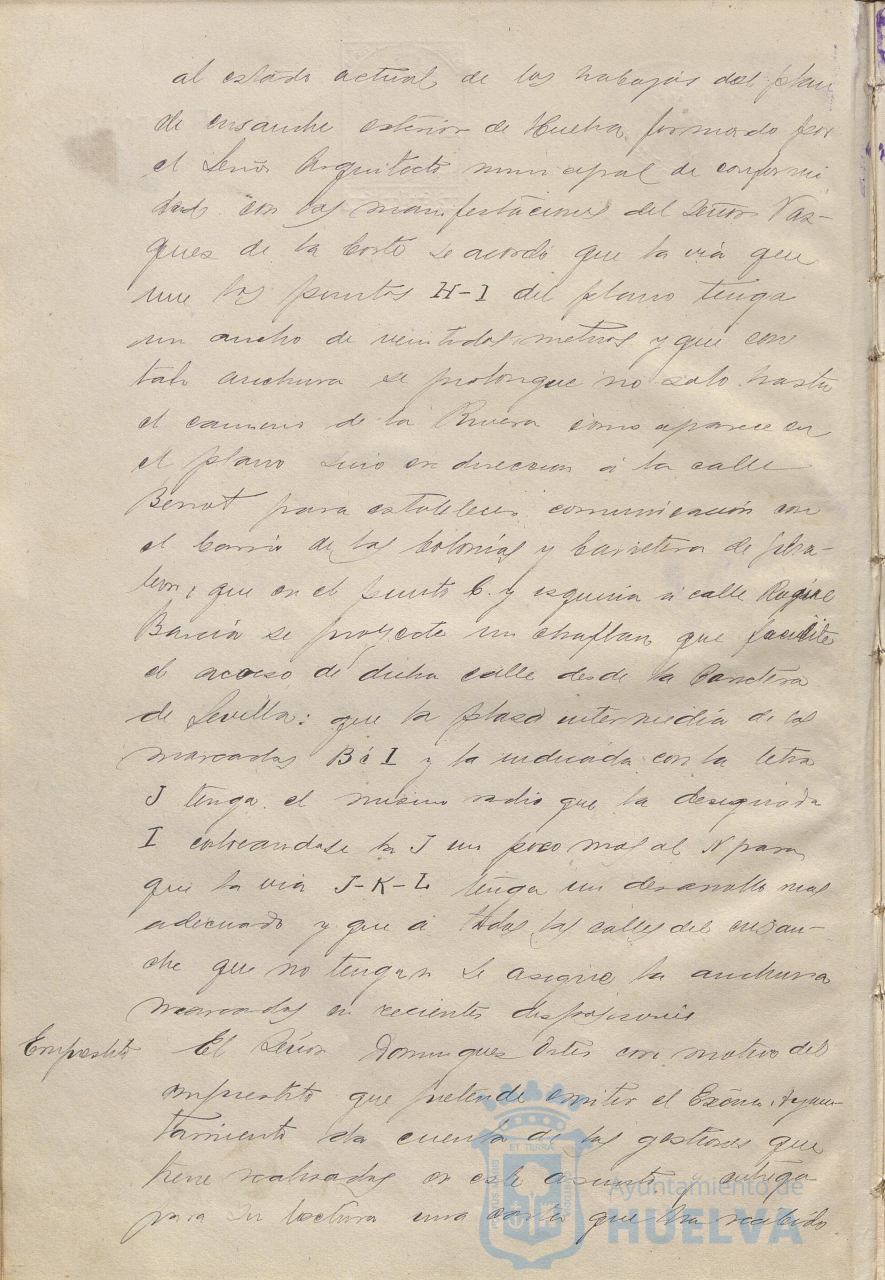 al estado actual de los trabajos del plan
de ensanche exterior de Huelva, formado por
el Señor Arquitecto municipal de conformi-
dad con las manifestaciones del Señor Vaz-
quez de la Corte se acordó que la via que
une los puntos H-I del plano tenga
un ancho de veintidos metros y que con
tal anchura se prolongue no solo hasta
el camino de la Rivera como aparece en
el plano sino en direccion á la calle
Berrot para establecer comunicación con
el barrio de las Colonias y Carretera de Gibra-
leon, que en el punto C. y esquina á calle Roque
Barcia se proyecte un chaflan que facilite
el acceso de dicha calle desde la Carretera
de Sevilla: que la plaza intermedia de las
marcadas B é I y la indicada con la letra
J tenga el mismo radio que la designada
I colocandose la J un poco mas al N para
que la via J-K-L tenga un desarrollo mas
adecuado y que á todas las calles del ensan-
che que no tengan se asigne la anchura
marcadas en recientes disposiciones
Emprestito El Señor Dominguez Ortis con motivo del
emprestito que pretende emitir el Excmo. Ayun-
tamiento da cuenta de las gestiones que
tiene realizadas en este asunto y entrega
para su lectura una carta que ha recibido
Ayuntamiento de
HUELVA